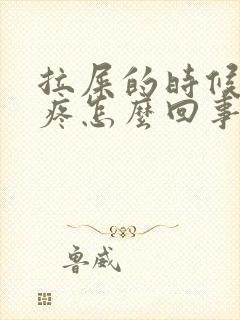 拉屎的時候
疼怎麼回事
魯威